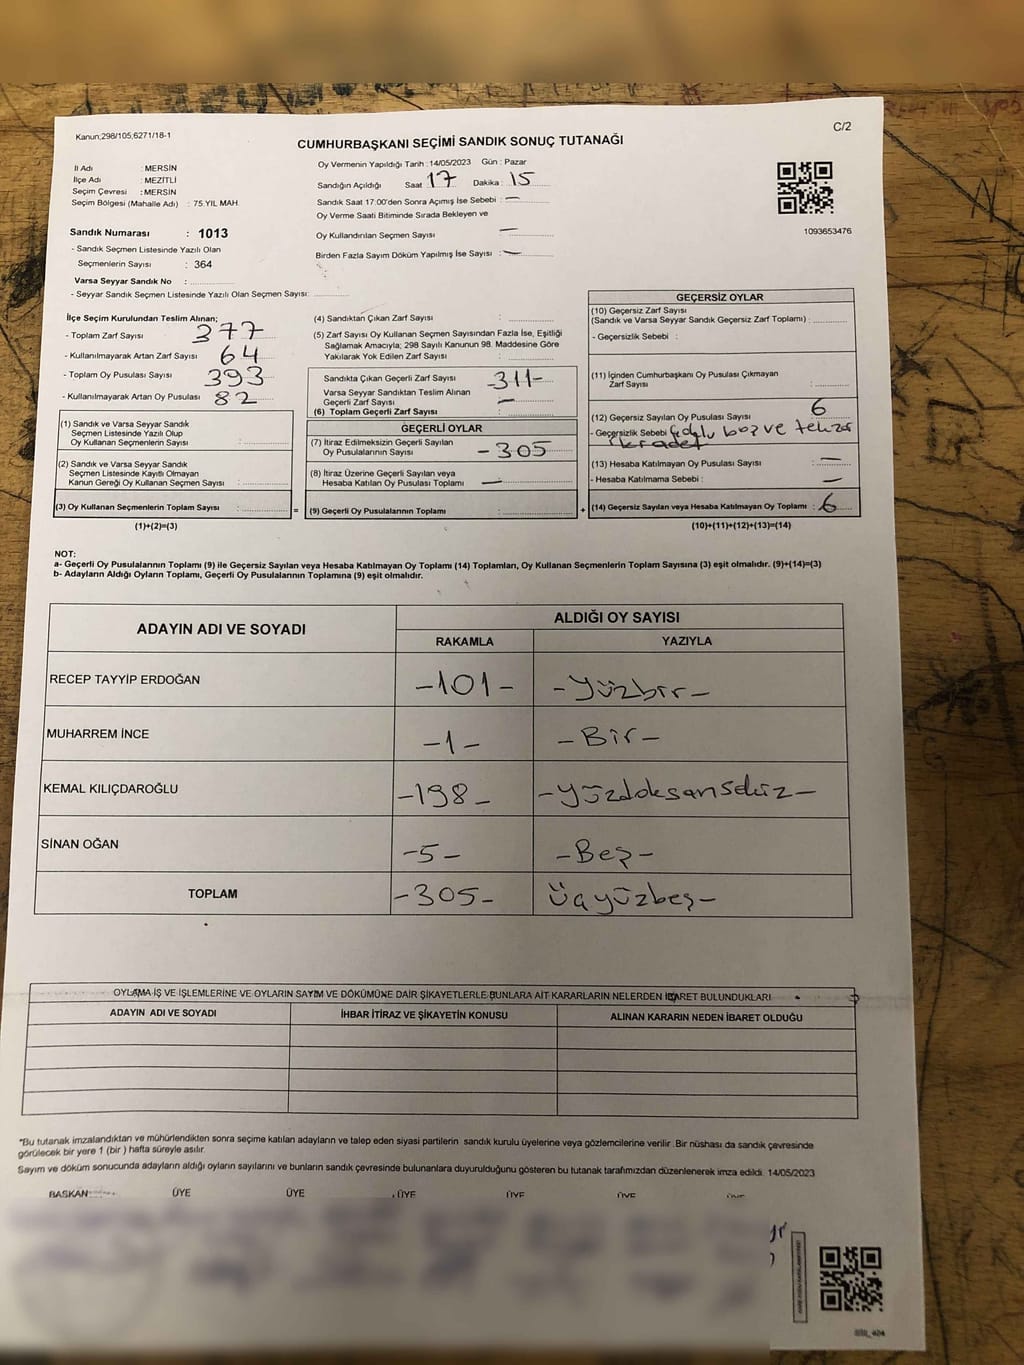 Kanun;298/105,6271/18-1
C/2
CUMHURBAŞKANI SEÇİMİ SANDIK SONUÇ TUTANAĞI
İl Adı : MERSİN
İlçe Adı : MEZİTLİ
Seçim Çevresi : MERSİN
Seçim Bölgesi (Mahalle Adı) : 75.YIL MAH.
Sandık Numarası : 1013
- Sandık Seçmen Listesinde Yazılı Olan
Seçmenlerin Sayısı : 364
Varsa Seyyar Sandık No :
- Seyyar Sandık Seçmen Listesinde Yazılı Olan Seçmen Sayısı:
Oy Vermenin Yapıldığı Tarih : 14/05/2023 Gün : Pazar
Sandığın Açıldığı Saat 17 Dakika : 15
Sandık Saat 17:00'den Sonra Açımış İse Sebebi : —
Oy Verme Saati Bitiminde Sırada Bekleyen ve
Oy Kullandırılan Seçmen Sayısı —
Birden Fazla Sayım Döküm Yapılmış İse Sayısı : —
1093653476
İlçe Seçim Kurulundan Teslim Alınan;
- Toplam Zarf Sayısı 377
- Kullanılmayarak Artan Zarf Sayısı 64
- Toplam Oy Pusulası Sayısı 393
- Kullanılmayarak Artan Oy Pusulası 82
(1) Sandık ve Varsa Seyyar Sandık
Seçmen Listesinde Yazılı Olup
Oy Kullanan Seçmenlerin Sayısı :
(2) Sandık ve Varsa Seyyar Sandık
Seçmen Listesinde Kayıtlı Olmayan
Kanun Gereği Oy Kullanan Seçmen Sayısı :
(3) Oy Kullanan Seçmenlerin Toplam Sayısı :
(1)+(2)=(3)
=
(4) Sandıktan Çıkan Zarf Sayısı :
(5) Zarf Sayısı Oy Kullanan Seçmen Sayısından Fazla İse, Eşitliği
Sağlamak Amacıyla; 298 Sayılı Kanunun 98. Maddesine Göre
Yakılarak Yok Edilen Zarf Sayısı :
Sandıkta Çıkan Geçerli Zarf Sayısı -311-
Varsa Seyyar Sandıktan Teslim Alınan
Geçerli Zarf Sayısı —
(6) Toplam Geçerli Zarf Sayısı :
GEÇERLİ OYLAR
(7) İtiraz Edilmeksizin Geçerli Sayılan
Oy Pusulalarının Sayısı -305
(8) İtiraz Üzerine Geçerli Sayılan veya
Hesaba Katılan Oy Pusulası Toplamı —
(9) Geçerli Oy Pusulalarının Toplamı :
+
GEÇERSİZ OYLAR
(10) Geçersiz Zarf Sayısı
(Sandık ve Varsa Seyyar Sandık Geçersiz Zarf Toplamı) :
- Geçersizlik Sebebi :
(11) İçinden Cumhurbaşkanı Oy Pusulası Çıkmayan
Zarf Sayısı :
(12) Geçersiz Sayılan Oy Pusulası Sayısı 6
- Geçersizlik Sebebi boş ve
(13) Hesaba Katılmayan Oy Pusulası Sayısı : —
- Hesaba Katılmama Sebebi : —
(14) Geçersiz Sayılan veya Hesaba Katılmayan Oy Toplamı : 6
(10)+(11)+(12)+(13)=(14)
NOT:
a- Geçerli Oy Pusulalarının Toplamı (9) ile Geçersiz Sayılan veya Hesaba Katılmayan Oy Toplamı (14) Toplamları, Oy Kullanan Seçmenlerin Toplam Sayısına (3) eşit olmalıdır. (9)+(14)=(3)
b- Adayların Aldığı Oyların Toplamı, Geçerli Oy Pusulalarının Toplamına (9) eşit olmalıdır.
ADAYIN ADI VE SOYADI
ALDIĞI OY SAYISI
RAKAMLA YAZIYLA
RECEP TAYYİP ERDOĞAN -101- -Yüzbir-
MUHARREM İNCE -1- -Bir-
KEMAL KILIÇDAROĞLU -198- -Yüzdoksansekiz-
SİNAN OĞAN -5- -Beş-
TOPLAM -305- Üçyüzbeş-
OYLAMA İŞ VE İŞLEMLERİNE VE OYLARIN SAYIM VE DÖKÜMÜNE DAİR ŞİKAYETLERLE BUNLARA AİT KARARLARIN NELERDEN İBARET BULUNDUKLARI
ADAYIN ADI VE SOYADI İHBAR İTİRAZ VE ŞİKAYETİN KONUSU ALINAN KARARIN NEDEN İBARET OLDUĞU
*Bu tutanak imzalandıktan ve mühürlendikten sonra seçime katılan adayların ve talep eden siyasi partilerin sandık kurulu üyelerine veya gözlemcilerine verilir .Bir nüshası da sandık çevresinde
görülecek bir yere 1 (bir ) hafta süreyle asılır.
Sayım ve döküm sonucunda adayların aldığı oyların sayılarını ve bunların sandık çevresinde bulunanlara duyurulduğunu gösteren bu tutanak tarafımızdan düzenlenerek imza edildi. 14/05/2023
BAŞKAN ÜYE ÜYE ÜYE ÜYE ÜYE ÜYE